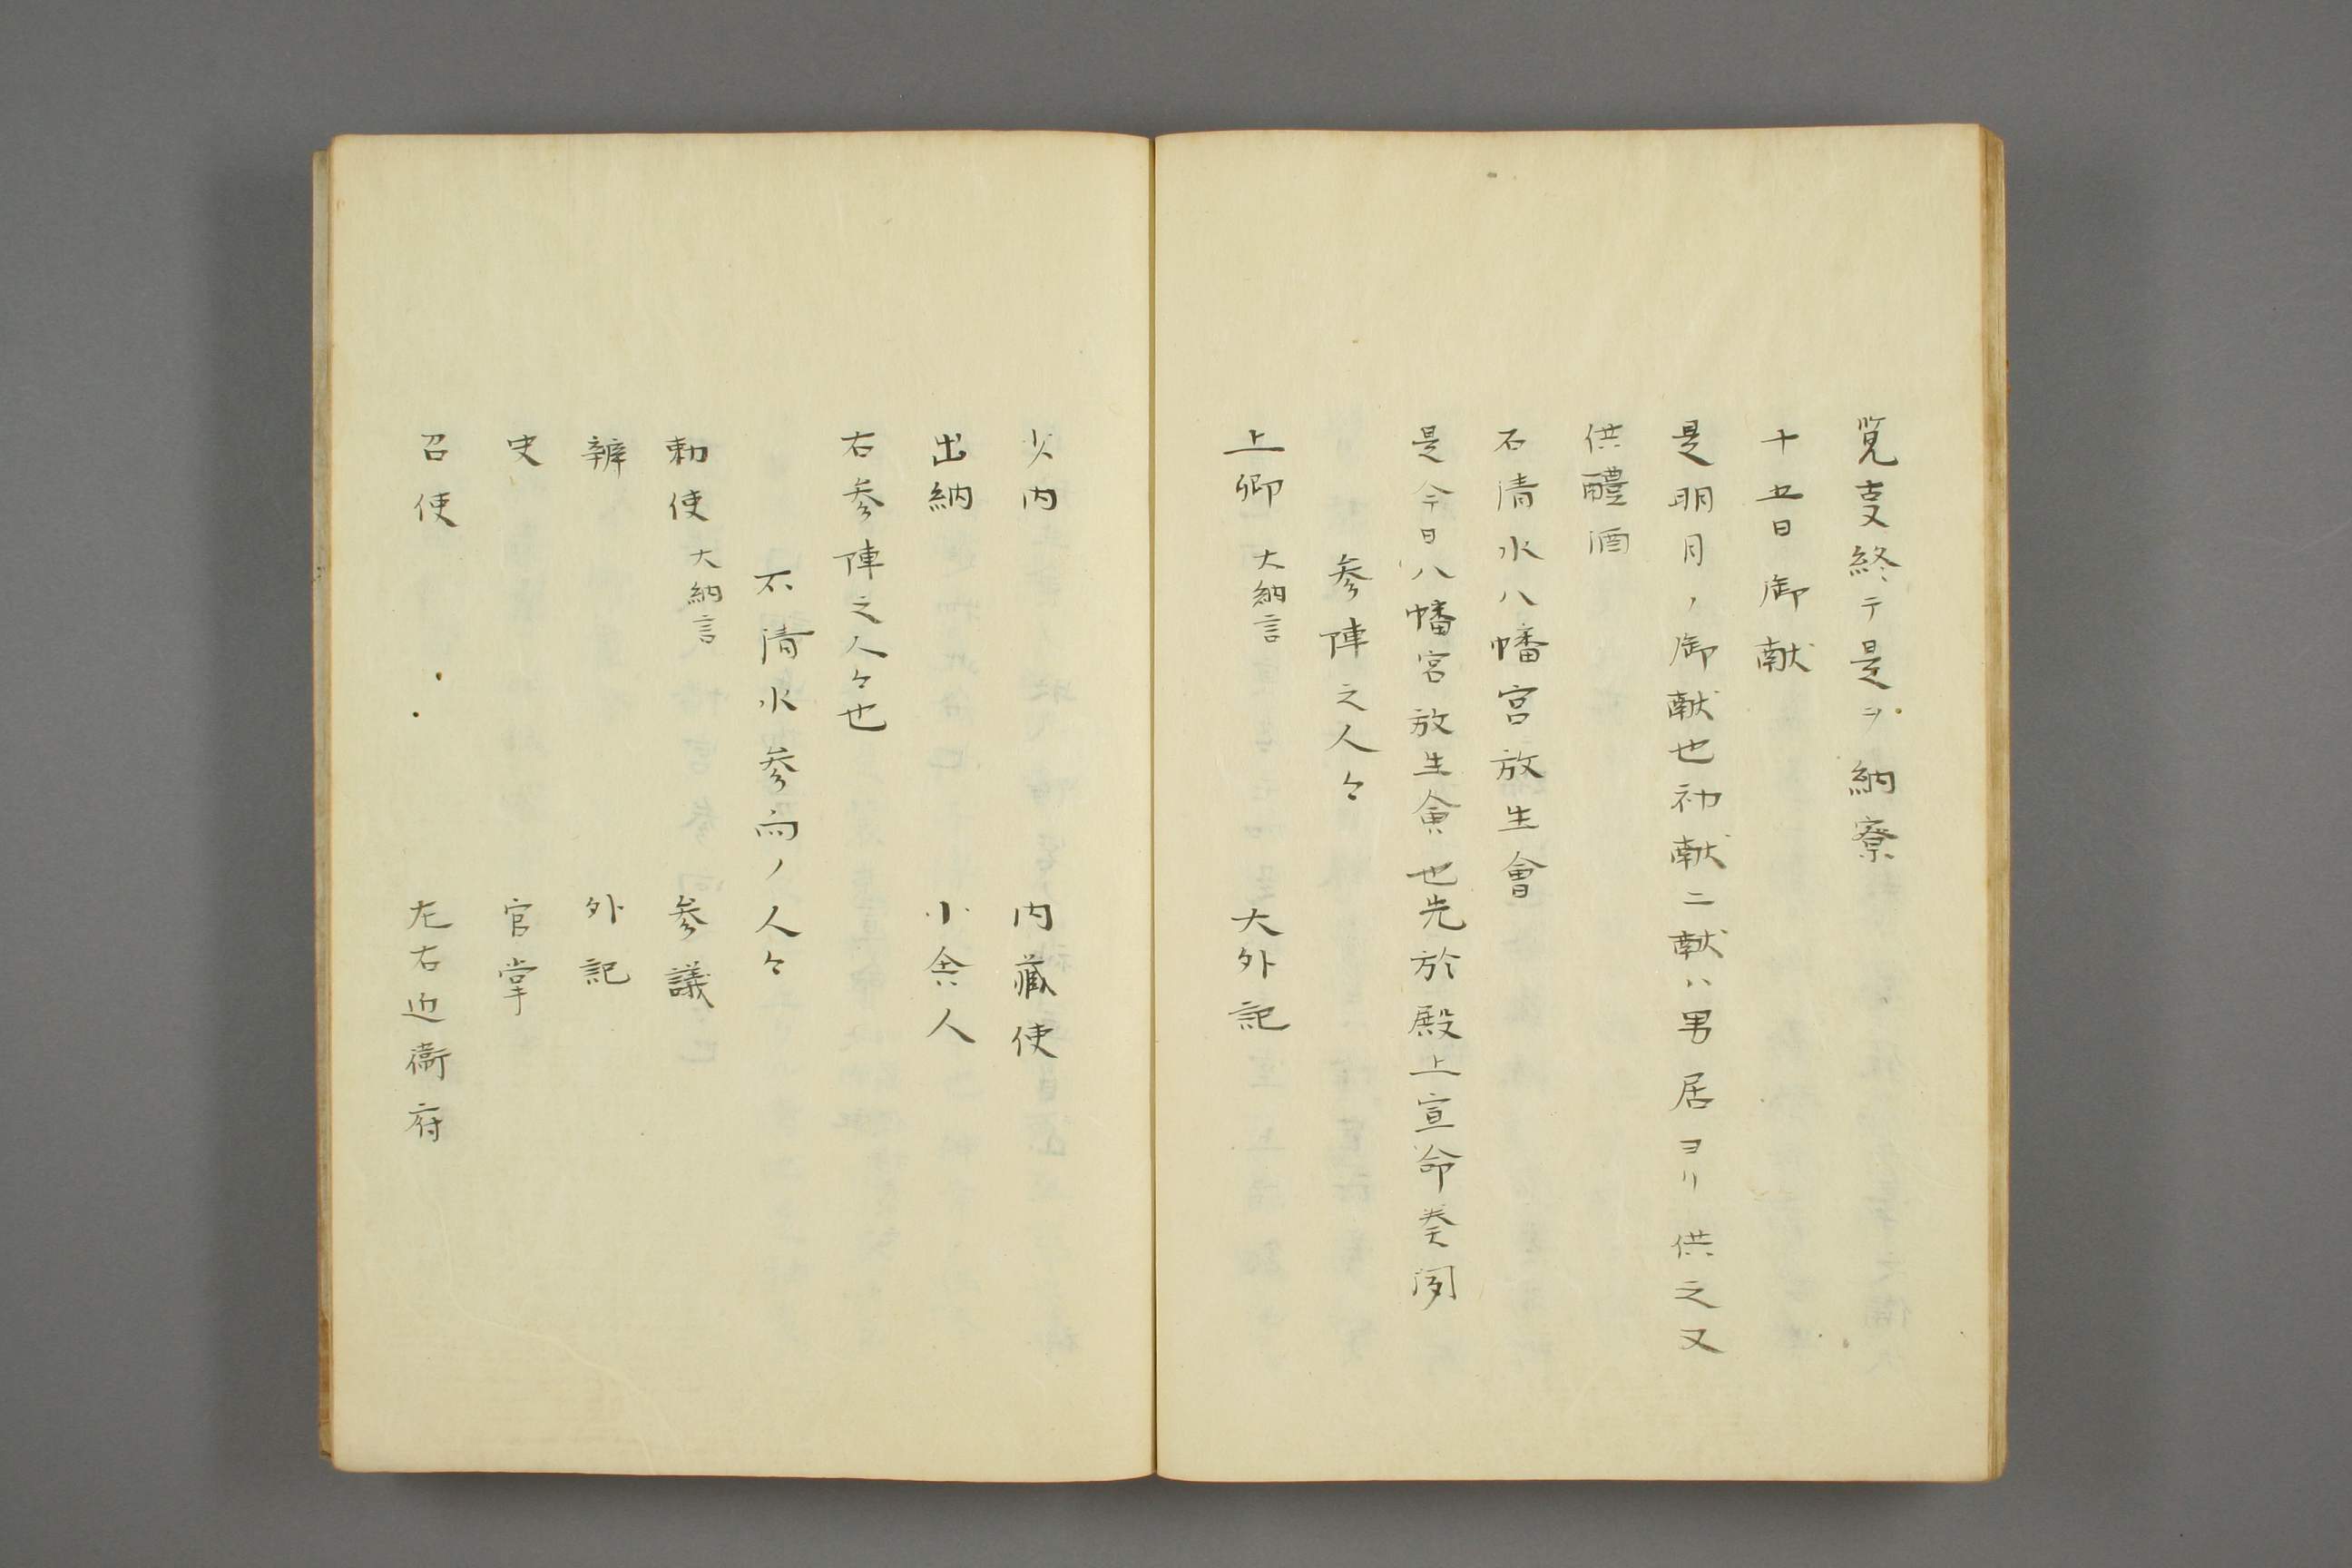 覧支終テ是ヲ納寮
十五日御献
是明月ノ御献也初献二献ハ男居ヨリ供之又
供醴酒
石清水八幡宮放生會
是今日八幡宮放生會也先於殿上宣命奏聞
参陣之人々
上卿 大納言 大外記
少内 内藏使
出納 小舎人
右参陣之人々也
石清水参向ノ人々
勅使 大納言 参議
辨 外記
史 官掌
召使 左右近衛府